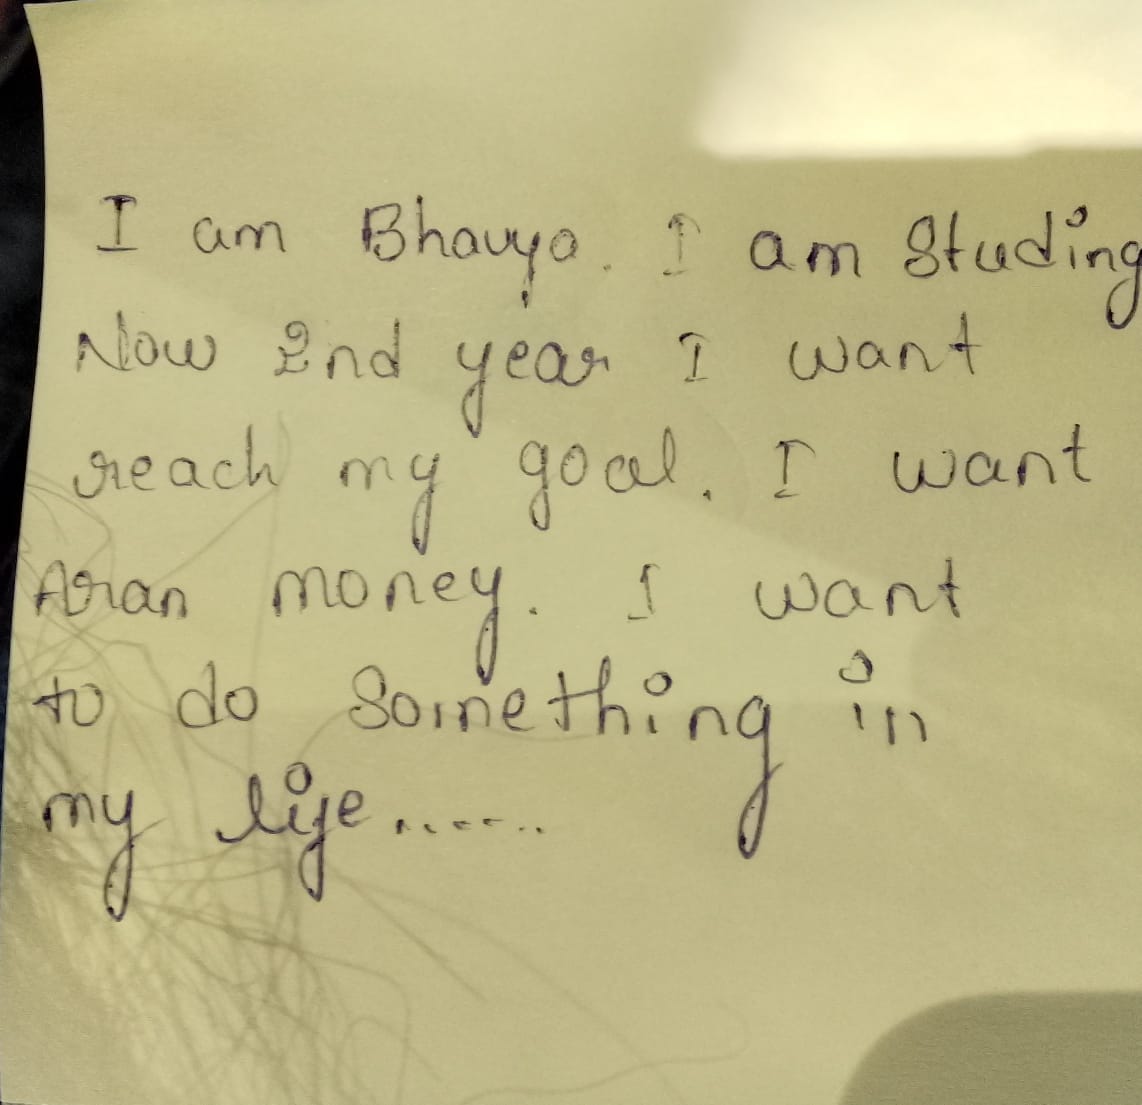 I am Bhavya. I am Studing
Now 2nd year I want
reach my goal. I want
Aran money. I want
to do Something in
my life.......